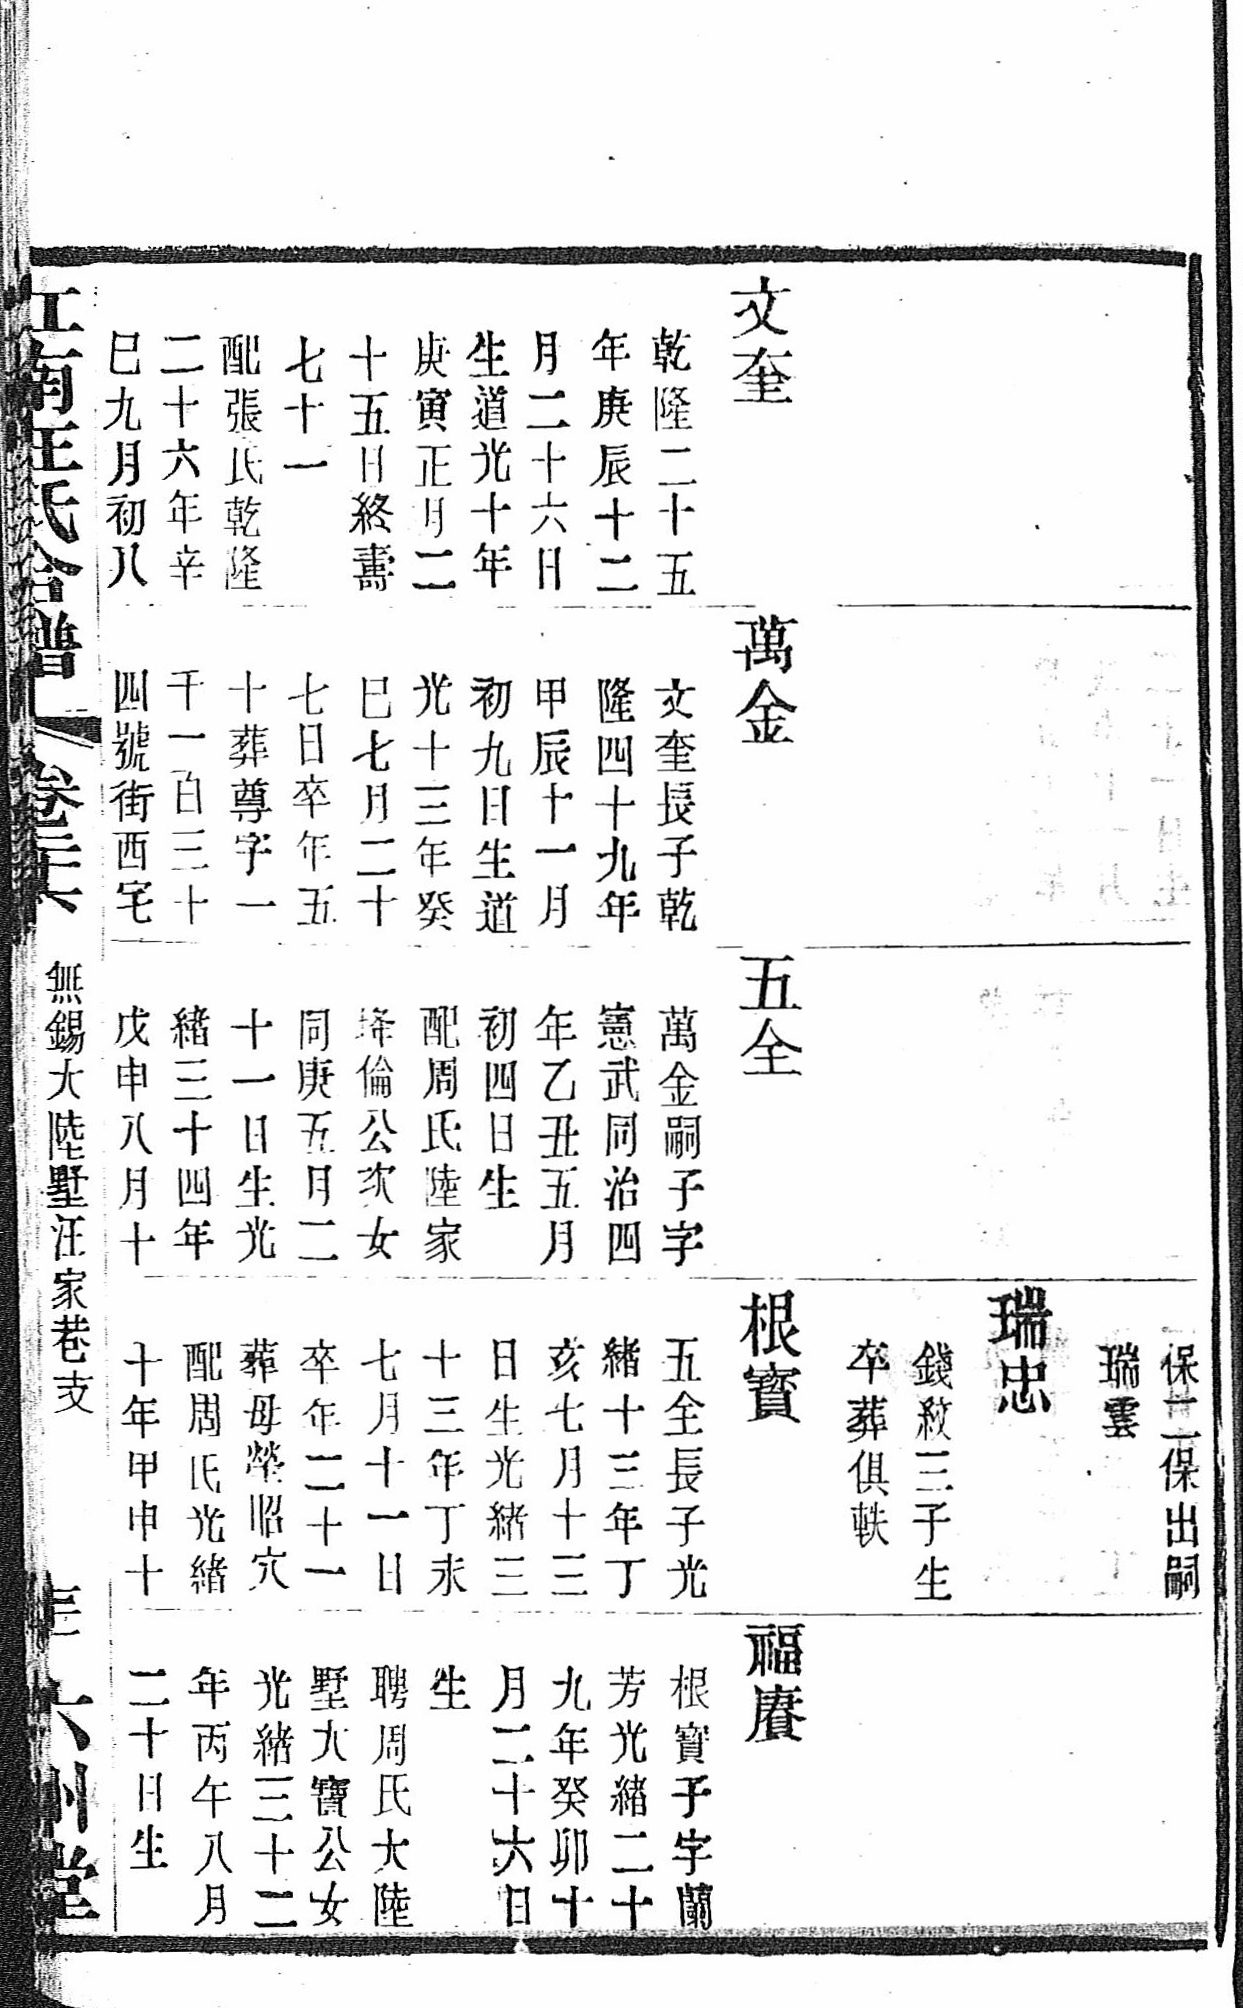 文奎
乾隆二十五
年庚辰十二
月二十六日
生道光十年
庚寅正月二
十五日終壽
七十一
配張氏乾隆
二十六年辛
巳九月初八
萬金
文奎長子乾
隆四十九年
甲辰十一月
初九日生道
光十三年癸
巳七月二十
七日卒年五
十葬尊字一
千一百三十
四號街西宅
五全
萬金嗣子字
憲武同治四
年乙丑五月
初四日生
配周氏陸家
埄倫公次女
同庚五月二
十一日生光
緒三十四年
戊申八月十
保二保出嗣
瑞雲
瑞忠
錢紋三子生
卒葬俱軼
根寳
五全長子光
緒十三年丁
亥七月十三
日生光緒三
十三年丁未
七月十一日
卒年二十一
葬母塋昭穴
配周氏光緒
十年甲申十
福賡
根寳子字蘭
芳光緒二十
九年癸卯十
月二十六日
生
聘周氏大陸
墅大寳公女
光緒三十二
年丙午八月
二十日生
江南汪氏合譜
卷三六
無錫大陸墅汪家巷支
六州堂